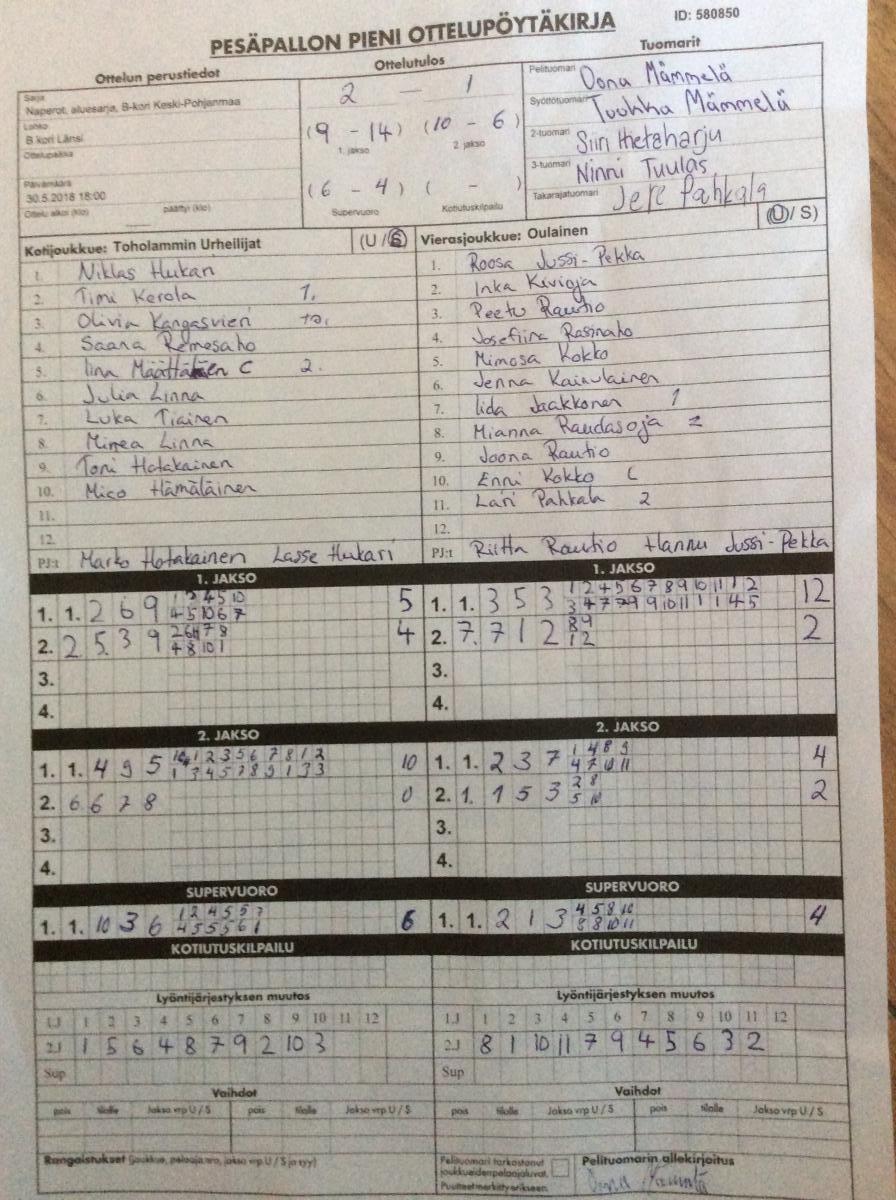 ID: 580850
PESÄPALLON PIENI OTTELUPÖYTÄKIRJA
Ottelun perustiedot
Sarja
Naperot, aluesarja, B-kori Keski-Pohjanmaa
Lohko
B kori Länsi
Ottelupaikka
Päivämäärä
30.5.2018 18:00
Ottelu alkoi (klo) päättyi (klo)
Ottelutulos
2 — 1
(9 - 14) (10 - 6)
1. jakso 2. jakso
(6 - 4) ( - )
Supervuoro Kotiutuskilpailu
Tuomarit
Pelituomari Oona Mämmelä
Syöttötuomari Tuukka Mämmelä
2-tuomari Siiri Hietaharju
3-tuomari Ninni Tuulas
Takarajatuomari Jere Pahkala
Kotijoukkue: Toholammin Urheilijat (U / S)
1. Niklas Hukari
2. Timi Kerola 1.
3. Olivia Kangasvieri
4. Saana Remesaho
5. Iina Määttänen C 2.
6. Julia Linna
7. Luka Tiainen
8. Minea Linna
9. Toni Hotakainen
10. Mico Hämäläinen
11.
12.
PJ:t Marko Hotakainen Lasse Hukari
Vierasjoukkue: Oulainen (U / S)
1. Roosa Jussi-Pekka
2. Inka Kivioja
3. Peetu Rautio
4. Josefiina Rasinaho
5. Mimosa Kokko
6. Jenna Kainulainen
7. Iida Jaakkonen 1
8. Mianna Raudasoja 2
9. Joona Rautio
10. Enni Kokko C
11. Lari Pahkala 2
12.
PJ:t Riitta Rautio Hannu Jussi-Pekka
1. JAKSO
1. 1. 2 6 9 1 2 4 5 10 5
4 5 10 6 7
2. 2 5. 3 9 4
4 8 10 1
3.
4.
1. JAKSO
1. 1. 3 5 3 1 2 4 5 6 7 8 9 10 11 1 2 12
3 4 7 7 9 9 10 11 1 1 4 5
2. 7. 7 1 2 8 9 2
1 2
3.
4.
2. JAKSO
1. 1. 4 9 5 10 1 2 3 5 6 7 8 1 2 10
1 3 4 5 7 8 9 1 3 3
2. 6 6 7 8 0
3.
4.
2. JAKSO
1. 1. 2 3 7 1 4 8 9 4
4 7 10 11
2. 1. 1 5 3 2 8 2
5 10
3.
4.
SUPERVUORO
1. 1. 10 3 6 1 2 4 5 5 7 6
4 5 5 5 6 1
SUPERVUORO
1. 1. 2 1 3 4 5 8 10 4
5 8 10 11
KOTIUTUSKILPAILU
KOTIUTUSKILPAILU
Lyöntijärjestyksen muutos
1.J 1 2 3 4 5 6 7 8 9 10 11 12
2.J 1 5 6 4 8 7 9 2 10 3
Sup
Lyöntijärjestyksen muutos
1.J 1 2 3 4 5 6 7 8 9 10 11 12
2.J 8 1 10 11 7 9 4 5 6 3 2
Sup
Vaihdot
pois tilalle Jakso vrp U / S pois tilalle Jakso vrp U / S
Vaihdot
pois tilalle Jakso vrp U / S pois tilalle Jakso vrp U / S
Rangaistukset (joukkue, pelaaja nro, jakso vrp U / S ja syy)
Pelituomari tarkastanut
joukkueiden pelaajaluvat.
Puutteet merkitty erikseen.
Pelituomarin allekirjoitus